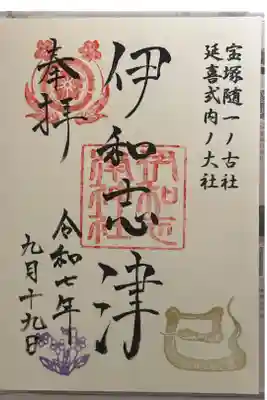 宝塚随一ノ古社
延喜式内ノ大社
奉拝
伊和志津
伊和志津神社
令和七年
九月十九日